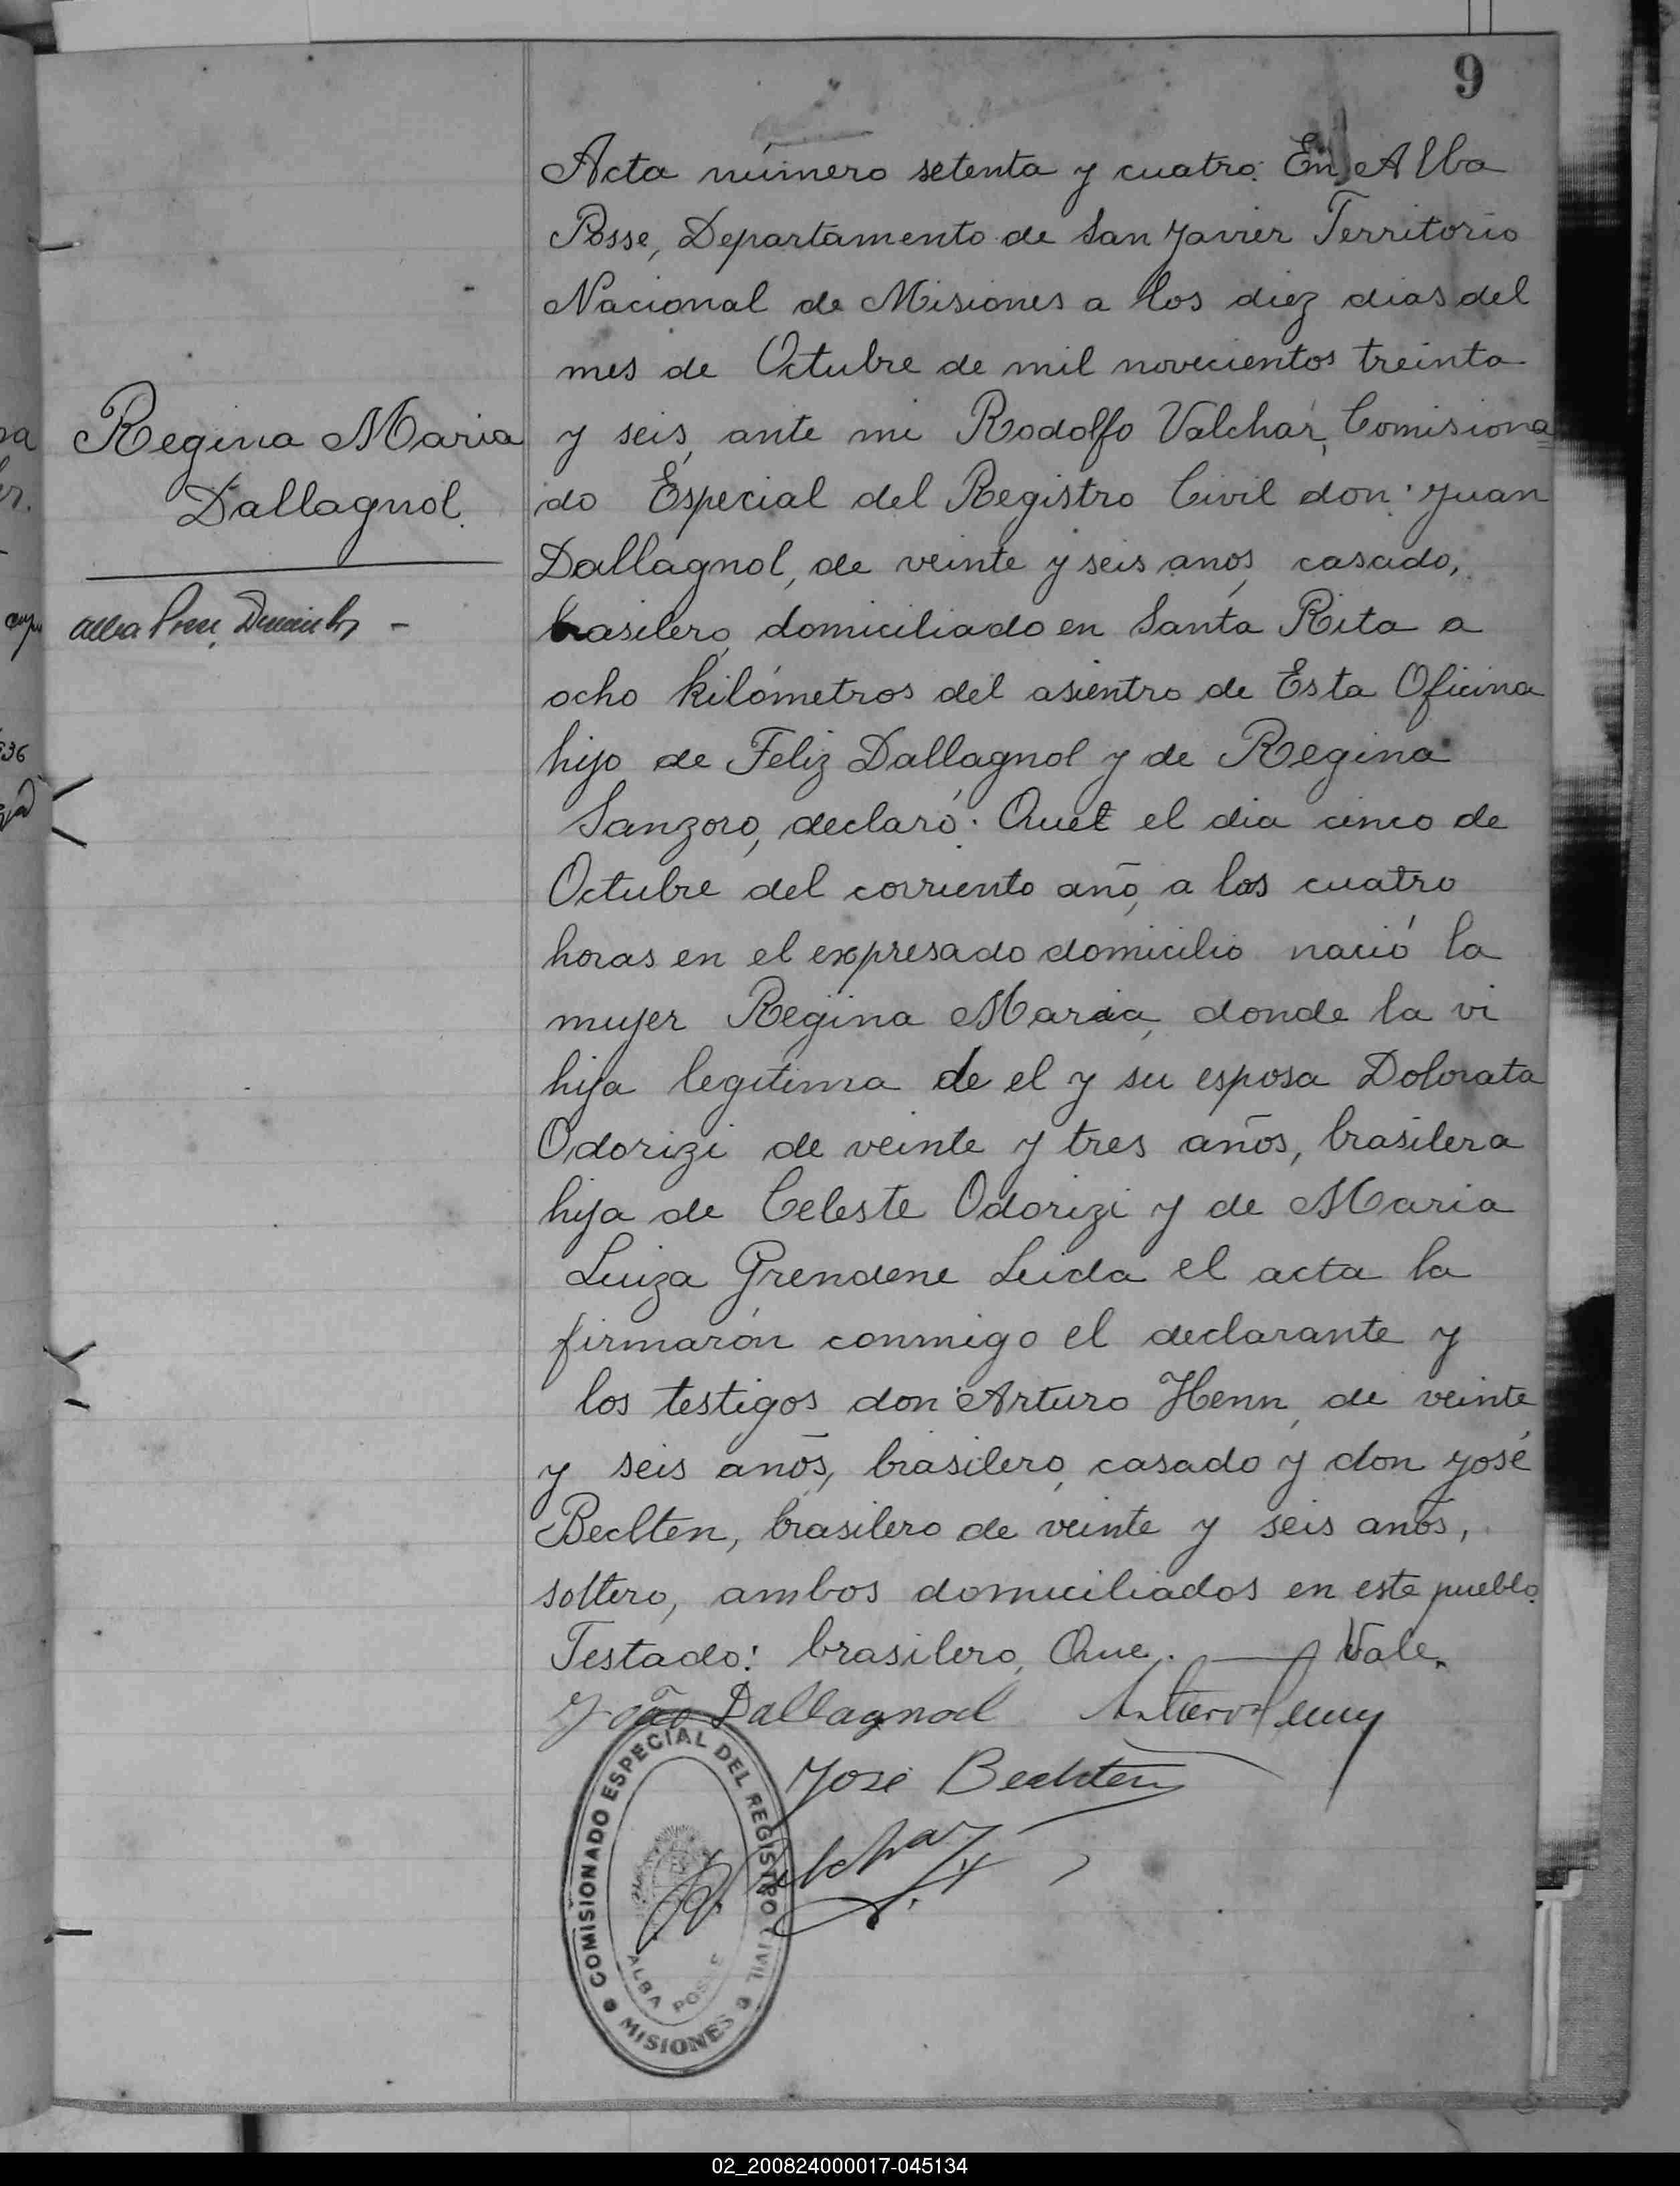 9
Acta número setenta y cuatro. En Alba
Posse, Departamento de San Javier Territorio
Nacional de Misiones a los diez dias del
mes de Octubre de mil novecientos treinta
Regina Maria
Dallagnol.
y seis, ante mi Rodolfo Valchar, Comisiona
do Especial del Registro Civil don Juan
Dallagnol, de veinte y seis anos, casado,
brasilero, domiciliado en Santa Rita a
ocho kilómetros del asientro de Esta Oficina
hijo de Feliz Dallagnol y de Regina
Sanzoro, declaró: Quet el dia cinco de
Octubre del corriento año, a los cuatro
horas en el expresado domicilio nació la
mujer Regina Maria, donde la vi
hija legitima de el y su esposa Dolorata
Odorizi de veinte y tres años, brasilera
hija de Celeste Odorizi y de Maria
Luiza Grendene Leida el acta la
firmarón conmigo el declarante y
los testigos don Arturo Henn, de veinte
y seis años, brasilero, casado y don José
Bechten, brasilero de veinte y seis años,
soltero, ambos domiciliados en este pueblo.
Testado: brasilero, Que. Vale.
João Dallagnol
José Bechten
COMISIONADO ESPECIAL DEL REGISTRO CIVIL
ALBA POSSE
MISIONES
02_200824000017-045134